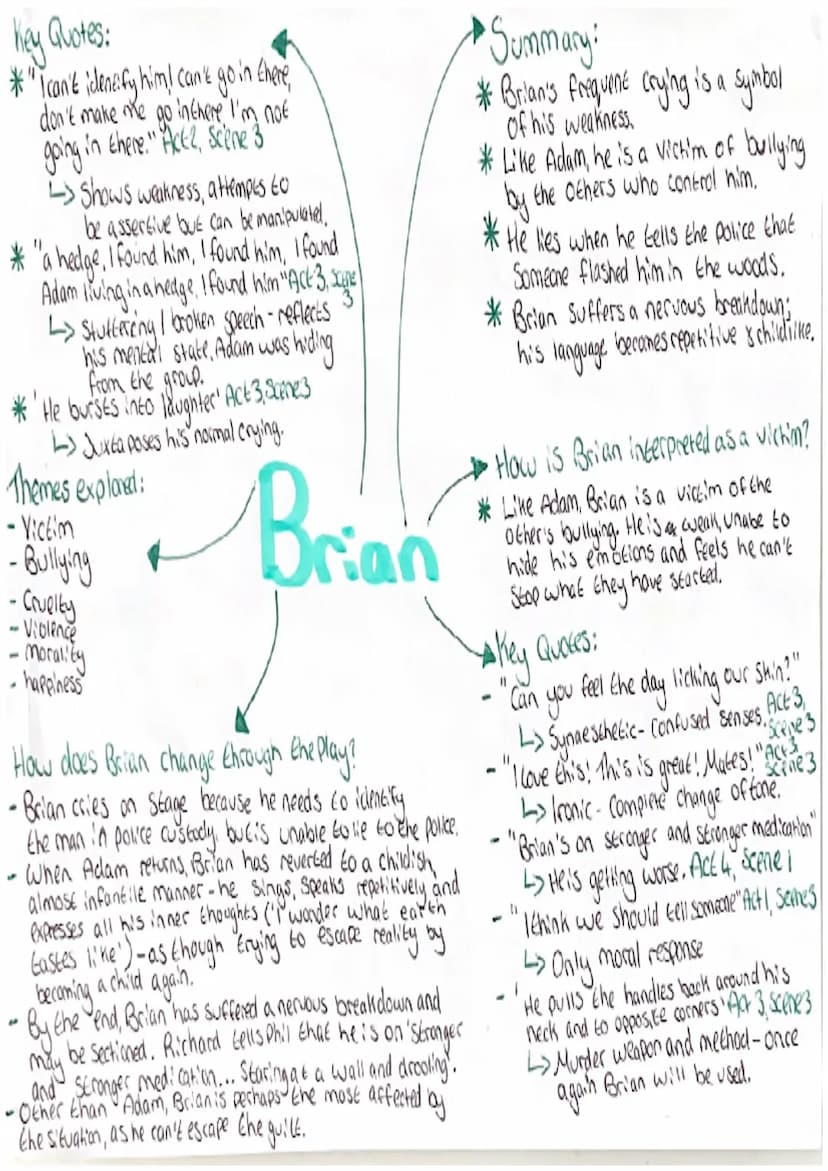 Key Quotes:
* "I can't identify him, I can't go in there,
don't make me go in there I'm not
going in there." Act 2, Scene 3
↳ Shows weakness, attempts to
be assertive but can be manipulated.
* "a hedge, I found him, I found him, I found
Adam living in a hedge, I found him" Act 3, Scene
3
↳ Stuttering / broken speech - reflects
his mental state, Adam was hiding
from the group.
* 'He bursts into laughter' Act 3, Scene 3
↳ Juxtaposes his normal crying.
Themes explored:
- Victim
- Bullying
- Cruelty
- Violence
- morality
- happiness
Brian
How does Brian change through the play?
- Brian cries on stage because he needs to identify
the man in police custody, but is unable to lie to the police.
- When Adam returns, Brian has reverted to a childish,
almost infantile manner - he sings, speaks repetitively and
expresses all his inner thoughts ('I wonder what earth
tastes like') - as though trying to escape reality by
becoming a child again.
- By the end, Brian has suffered a nervous breakdown and
may be sectioned. Richard tells Phil that he is on 'stronger
and stronger medication... Staring at a wall and drooling'.
- Other than Adam, Brian is perhaps the most affected by
the situation, as he can't escape the guilt.
Summary:
* Brian's frequent crying is a symbol
of his weakness.
* Like Adam, he is a victim of bullying
by the others who control him.
* He lies when he tells the police that
someone flashed him in the woods.
* Brian suffers a nervous breakdown;
his language becomes repetitive & childlike.
How is Brian interpreted as a victim?
* Like Adam, Brian is a victim of the
other's bullying. He is weak, unabe to
hide his emotions and feels he can't
stop what they have started.
Key Quotes:
- "Can you feel the day licking our skin?"
Act 3,
Scene 3
↳ Synaesthetic - confused senses.
- "I love this! This is great! Mates!" Act 3
Scene 3
↳ Ironic - Complete change of tone.
- "Brian's on stronger and stronger medication"
↳ He is getting worse. Act 4, Scene 1
- "I think we should tell someone" Act 1, Scene 3
↳ Only moral response
- 'He pulls the handles back around his
neck and to opposite corners' Act 3, Scene 3
↳ Murder weapon and method - once
again Brian will be used.